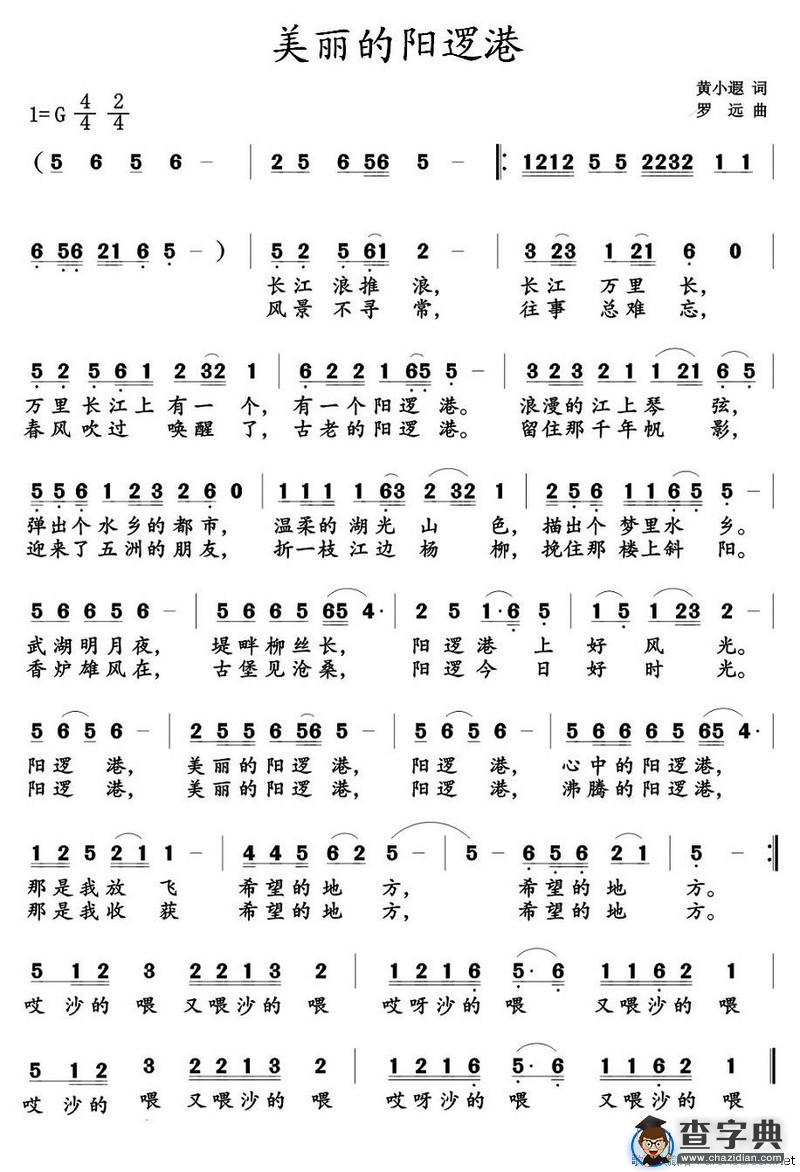 美丽的阳逻港
黄小遐 词
1=G 4/4 2/4
罗 远 曲
(5 6 5 6 - | 2 5 6 56 5 - |: 1212 5 5 2232 1 1 |
6 56 21 6 5 -) | 5 2 5 61 2 - | 3 23 1 21 6 0 |
长江浪推浪, 长江万里长,
风景不寻常, 往事总难忘,
5 2 5 6 1 2 32 1 | 6 2 2 1 65 5 - | 3 2 3 2 1 1 21 6 5 |
万里长江上有一个, 有一个阳逻港。 浪漫的江上琴弦,
春风吹过唤醒了, 古老的阳逻港。 留住那千年帆影,
5 5 6 1 2 3 2 6 0 | 1 1 1 1 63 2 32 | 2 5 6 1 1 6 5 5 - |
弹出个水乡的都市, 温柔的湖光山色, 描出个梦里水乡。
迎来了五洲的朋友, 折一枝江边杨柳, 挽住那楼上斜阳。
5 6 6 5 6 - | 5 6 6 5 65 4· | 2 5 1·6 5 | 1 5 1 23 2 - |
武湖明月夜, 堤畔柳丝长, 阳逻港上好风光。
香炉雄风在, 古堡见沧桑, 阳逻今日好时光。
5 6 5 6 - | 2 5 5 6 56 5 - | 5 6 5 6 - | 5 6 6 6 5 65 4· |
阳逻港, 美丽的阳逻港, 阳逻港, 心中的阳逻港,
阳逻港, 美丽的阳逻港, 阳逻港, 沸腾的阳逻港,
1 2 5 2 1 1 - | 4 4 5 6 2 5 - | 5 - | 6 5 6 2 1 | 5 - :|
那是我放飞希望的地方, 希望的地方。
那是我收获希望的地方, 希望的地方。
5 1 2 3 2 2 1 3 2 | 1 2 1 6 5· 6 1 1 6 2 1 |
哎沙的喂又喂沙的喂 哎呀沙的喂又喂沙的喂
5 1 2 3 2 2 1 3 2 | 1 2 1 6 5· 6 1 1 6 2 1 ‖
哎沙的喂又喂沙的喂 哎呀沙的喂又喂沙的喂
查字典
www.chazidian.com